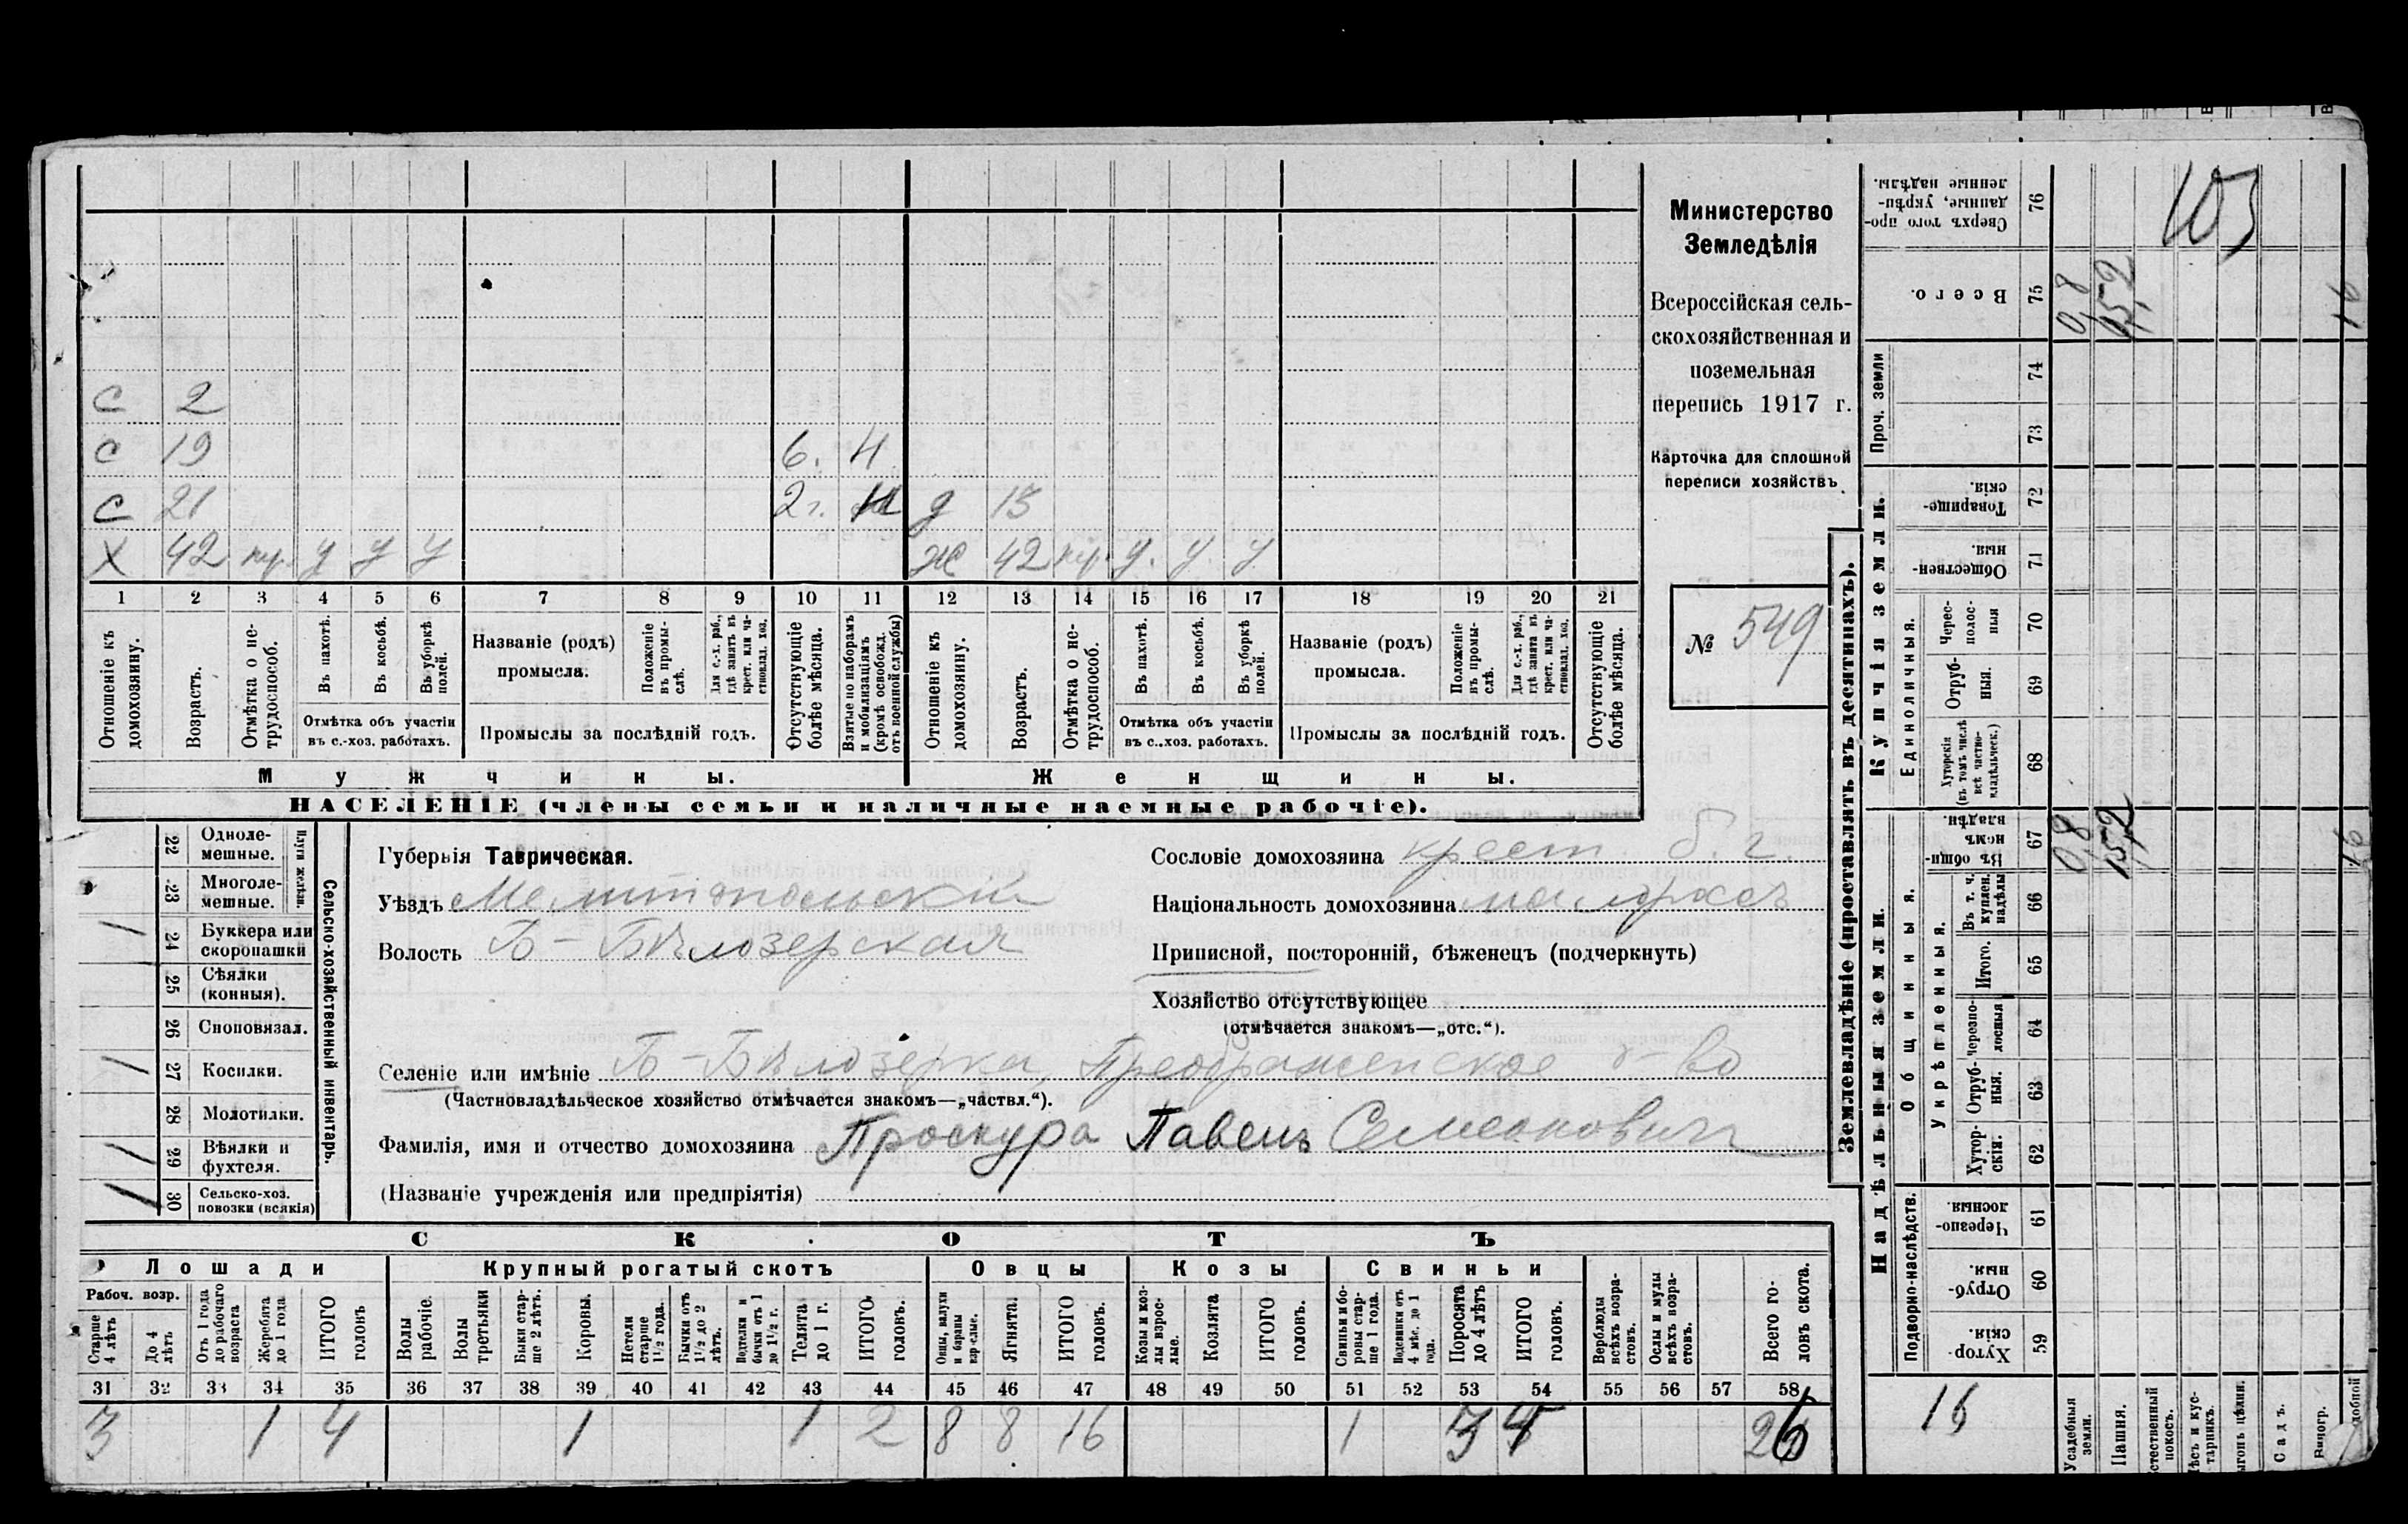 С 2
С 19 6. Н
С 21 2 г. Н Д 15
Х 42 пр. у у у Ж 42 пр. у. у у
1 2 3 4 5 6 7 8 9 10 11 12 13 14 15 16 17 18 19 20 21
Отношеніе къ домохозяину.
Возрастъ.
Отмѣтка о нетрудоспособ.
Въ пахотѣ.
Въ косьбѣ.
Въ уборкѣ полей.
Отмѣтка объ участіи
въ с.-хоз. работахъ.
Названіе (родъ)
промысла.
Положеніе въ промыслѣ.
Для с.-х. раб., гдѣ занятъ въ крест. или частновлад. хоз.
Промыслы за послѣдній годъ.
Отсутствующіе болѣе мѣсяца.
Взятые по наборамъ и мобилизаціямъ (кромѣ освобожд. отъ военной службы)
Отношеніе къ домохозяину.
Возрастъ.
Отмѣтка о нетрудоспособ.
Въ пахотѣ.
Въ косьбѣ.
Въ уборкѣ полей.
Отмѣтка объ участіи
въ с..хоз. работахъ.
Названіе (родъ)
промысла.
Положеніе въ промыслѣ.
Для с.-х. раб., гдѣ занятъ въ крест. или частновлад. хоз.
Промыслы за послѣдній годъ.
Отсутствующіе болѣе мѣсяца.
Мужчины. Женщины.
НАСЕЛЕНІЕ (члены семьи и наличные наемные рабочіе).
Министерство
Земледѣлія
Всероссійская сель-
скохозяйственная и
поземельная
перепись 1917 г.
Карточка для сплошной
переписи хозяйствъ
№ 549
22 Одноле-
мешные.
23 Многоле-
мешные.
Плуги желѣзн.
/ 24 Буккера или
скоропашки
25 Сѣялки
(конныя).
26 Сноповязал.
/ 27 Косилки.
28 Молотилки.
/ 29 Вѣялки и
фухтеля.
/ 30 Сельско-хоз.
повозки (всякія)
Сельско-хозяйственный инвентарь.
Губернія Таврическая.
Уѣздъ Мелитопольскій
Волость Б-Бѣлозерская
Сословіе домохозяина крест. б. г.
Національность домохозяина малорос
Приписной, посторонній, бѣженецъ (подчеркнуть)
Хозяйство отсутствующее
(отмѣчается знакомъ—„отс.“).
Селеніе или имѣніе Б-Бѣлозерка, Преображенское о-во
(Частновладѣльческое хозяйство отмѣчается знакомъ—„частвл.“).
Фамилія, имя и отчество домохозяина Проскура Павелъ Семеновичъ
(Названіе учрежденія или предпріятія)
СКОТЪ
Лошади Крупный рогатый скотъ Овцы Козы Свиньи
Рабоч. возр.
Старше 4 лѣтъ
До 4 лѣтъ
Отъ 1 года до рабочаго возраста
Жеребята до 1 года
ИТОГО головъ
Волы рабочіе.
Волы третьяки
Быки старше 2 лѣтъ.
Коровы.
Нетели старше 1½ года.
Бычки отъ 1½ до 2 лѣтъ.
Подтелки и бычки отъ 1 до 1½ г.
Телята до 1 г.
ИТОГО головъ.
Овцы, валухи и бараны взрослые.
Ягнята.
ИТОГО головъ.
Козы и козлы взрослые.
Козлята
ИТОГО головъ.
Свиньи и боровы старше 1 года.
Подсвинки отъ 4 мѣс. до 1 года.
Поросята до 4 лѣтъ
ИТОГО головъ.
Верблюды всѣхъ возрастовъ.
Ослы и мулы всѣхъ возрастовъ.
Всего головъ скота.
31 32 33 34 35 36 37 38 39 40 41 42 43 44 45 46 47 48 49 50 51 52 53 54 55 56 57 58
3 1 4 1 1 2 8 8 16 1 3 4 26
Землевладѣніе (проставлять въ десятинахъ).
Надѣльныя земли. Купчія земли. Проч. земли
Подворно-наслѣдств.
Общинныя.
Укрѣпленныя.
Единоличныя.
Хуторскія. 59
Отрубныя. 60
Черезполосныя. 61
Хуторскія. 62
Отрубныя. 63
Черезполосныя 64
Итого. 65
Въ т. ч. куплен. надѣлы 66
Въ общинномъ владѣн. 67 0,8 15,2 16
Хуторскія (въ томъ числѣ всѣ частновладѣльческ.) 68
Отрубныя. 69
Чересполосныя 70
Общественныя. 71
Товарищескія. 72
73
74
Всего. 75 0,8 15,2 16
Сверхъ того проданные, укрѣпленные надѣлы. 76
103
16
Усадебныя земли.
Пашня.
стественный покосъ.
ѣсъ и кустарникъ.
ыгонъ цѣлин.
Садъ.
Виногр.
добной